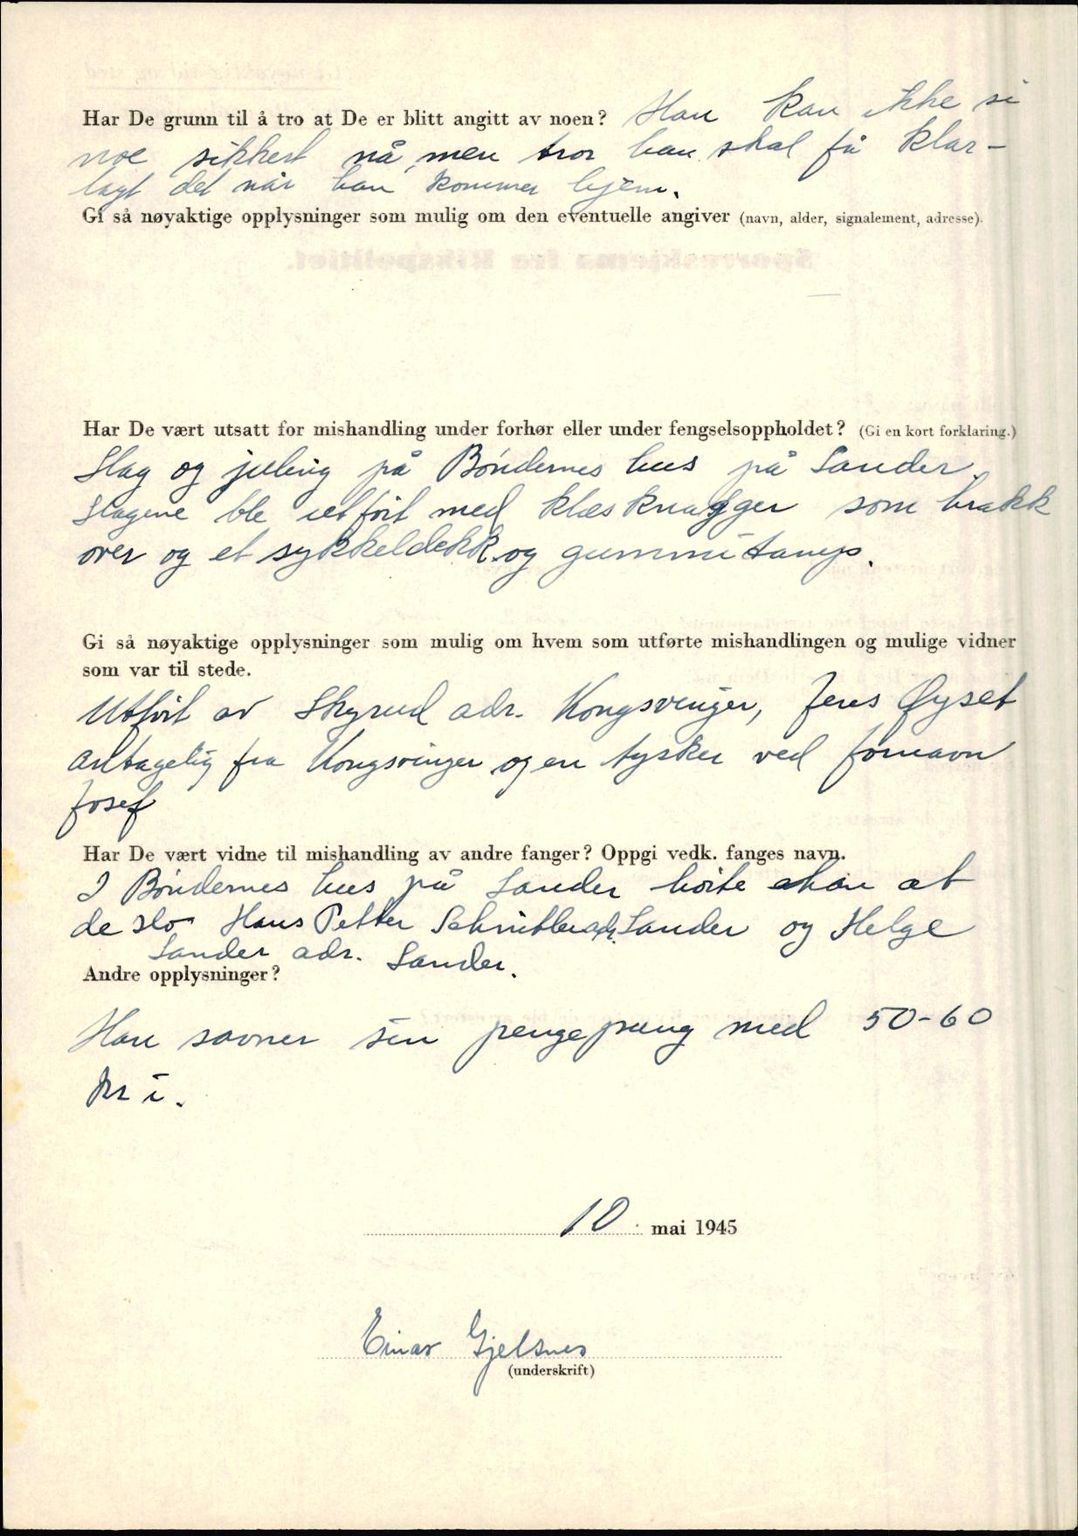 Har De grunn til å tro at De er blitt angitt av noen? Han kan ikke si
noe sikkert nå, men tror han skal få klar-
lagt det når han kommer hjem.
Gi så nøyaktige opplysninger som mulig om den eventuelle angiver (navn, alder, signalement, adresse).
Har De vært utsatt for mishandling under forhør eller under fengselsoppholdet? (Gi en kort forklaring.)
Slag og juling på Bøndernes hus på Sander.
Slagene ble utført med klesknagger som brakk
over og et sykkeldekk og gummitamp.
Gi så nøyaktige opplysninger som mulig om hvem som utførte mishandlingen og mulige vidner
som var til stede.
Utført av Skyrud adr. Kongsvinger, Jens Øyset
antagelig fra Kongsvinger og en tysker ved fornavn
Josef
Har De vært vidne til mishandling av andre fanger? Oppgi vedk. fanges navn.
I Bøndernes hus på Sander hørte han at
de slo Hans Petter Schnitler adr. Sander og Helge
Sander adr. Sander.
Andre opplysninger?
Han savner sin pengepung med 50-60
kr i.
10. mai 1945
Einar Gjelsnes
(underskrift)